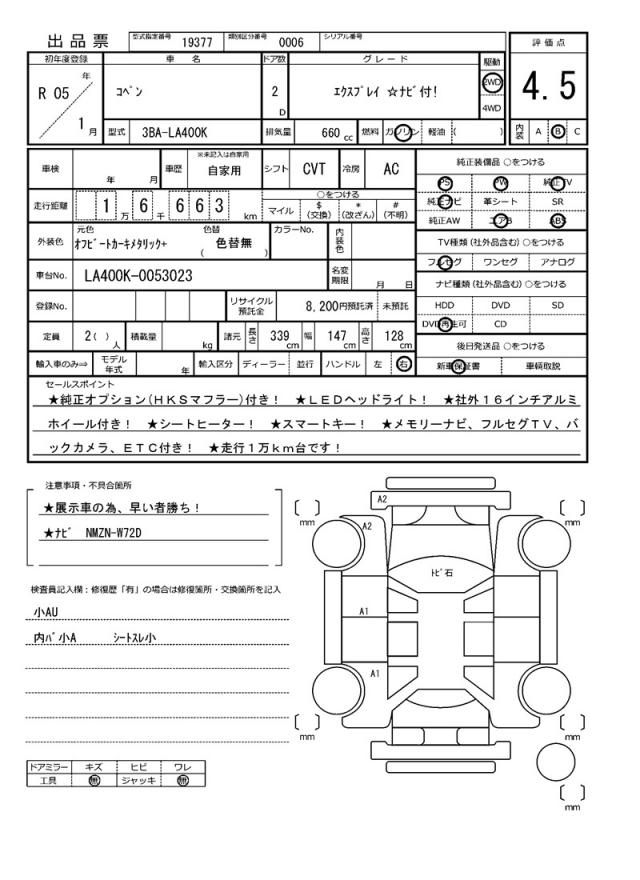 出品票 型式指定番号 19377 類別区分番号 0006 シリアル番号
評価点
4.5
内装 A B C
初年度登録 車名 ドア数 グレード 駆動
R 05 年 1 月 コペン 2 D エクスプレイ ☆ナビ付! 2WD 4WD
型式 3BA-LA400K 排気量 660 cc 燃料 ガソリン 軽油 ( )
車検 年 月 車歴 ※未記入は自家用 自家用 シフト CVT 冷房 AC
走行距離 1 万 6 千 6 6 3 km ○をつける マイル $ (交換) * (改ざん) # (不明)
外装色 元色 オフビートカーキメタリック+ 色替 ( 色替無 ) カラーNo. 内装色
車台No. LA400K-0053023 名変期限 月 日
登録No. リサイクル預託金 8,200円預託済 未預託
定員 2( ) 人 積載量 kg 諸元 長さ 339 cm 幅 147 cm 高さ 128 cm
輸入車のみ⇒ モデル年式 年 輸入区分 ディーラー 並行 ハンドル 左 右
純正装備品 ○をつける
PS PW 純正TV
純正ナビ 革シート SR
純正AW エアB ABS
TV種類(社外品含む)○をつける
フルセグ ワンセグ アナログ
ナビ種類(社外品含む)○をつける
HDD DVD SD
DVD再生可 CD
後日発送品 ○をつける
新車保証書 車輌取説
セールスポイント
★純正オプション(HKSマフラー)付き! ★LEDヘッドライト! ★社外16インチアルミ
ホイール付き! ★シートヒーター! ★スマートキー! ★メモリーナビ、フルセグTV、バ
ックカメラ、ETC付き! ★走行1万km台です!
注意事項・不具合箇所
★展示車の為、早い者勝ち!
★ナビ NMZN-W72D
検査員記入欄:修復歴「有」の場合は修復箇所・交換箇所を記入
小AU
内バ小A シートスレ小
ドアミラー キズ ヒビ ワレ
工具 無 ジャッキ 無
A2
A2
mm
mm
トビ石
A1
A1
mm
mm
mm